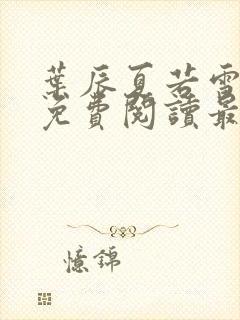 葉辰夏若雪
免費閱讀最
憶錦